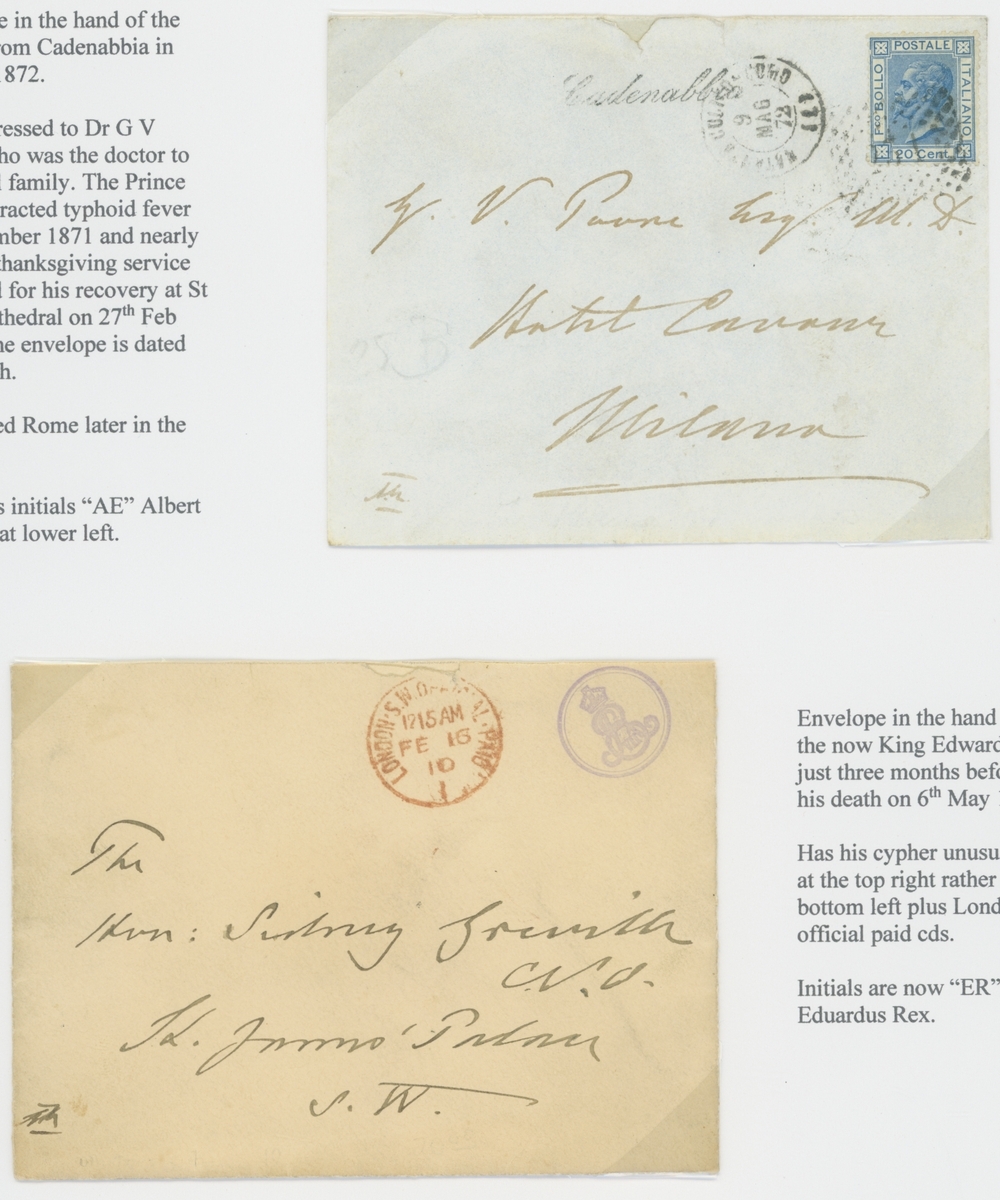 e in the hand of the
rom Cadenabbia in
1872.
ressed to Dr G V
ho was the doctor to
l family. The Prince
racted typhoid fever
mber 1871 and nearly
thanksgiving service
d for his recovery at St
thedral on 27th Feb
he envelope is dated
h.
ed Rome later in the
s initials “AE” Albert
at lower left.
Cadenabbia
9 MAG 72
POSTALE
Pco BOLLO
ITALIANO
20 Cent
G. V. Poore Esq M.D.
Hotel Cavour
Milano
LONDON.S.W.OFFICIAL.PAID
1215AM
FE 16
10
The
Hon: Sidney Greville
C.V.O.
St. James' Palace
S.W.
Envelope in the hand
the now King Edward
just three months befo
his death on 6th May 1
Has his cypher unusu
at the top right rather
bottom left plus Lond
official paid cds.
Initials are now “ER”
Eduardus Rex.